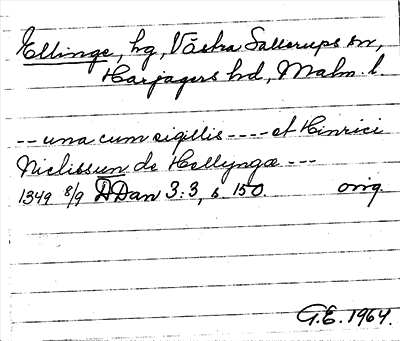 Ellinge, hg, Västra Sallerups sn,
Harjagers hd, Malm. l.
-- una cum sigillis ---- et Hinrici
Niclissun de Hellynga ---
1349 8/9 DDan 3:3, s. 150. orig.
G.E. 1964.